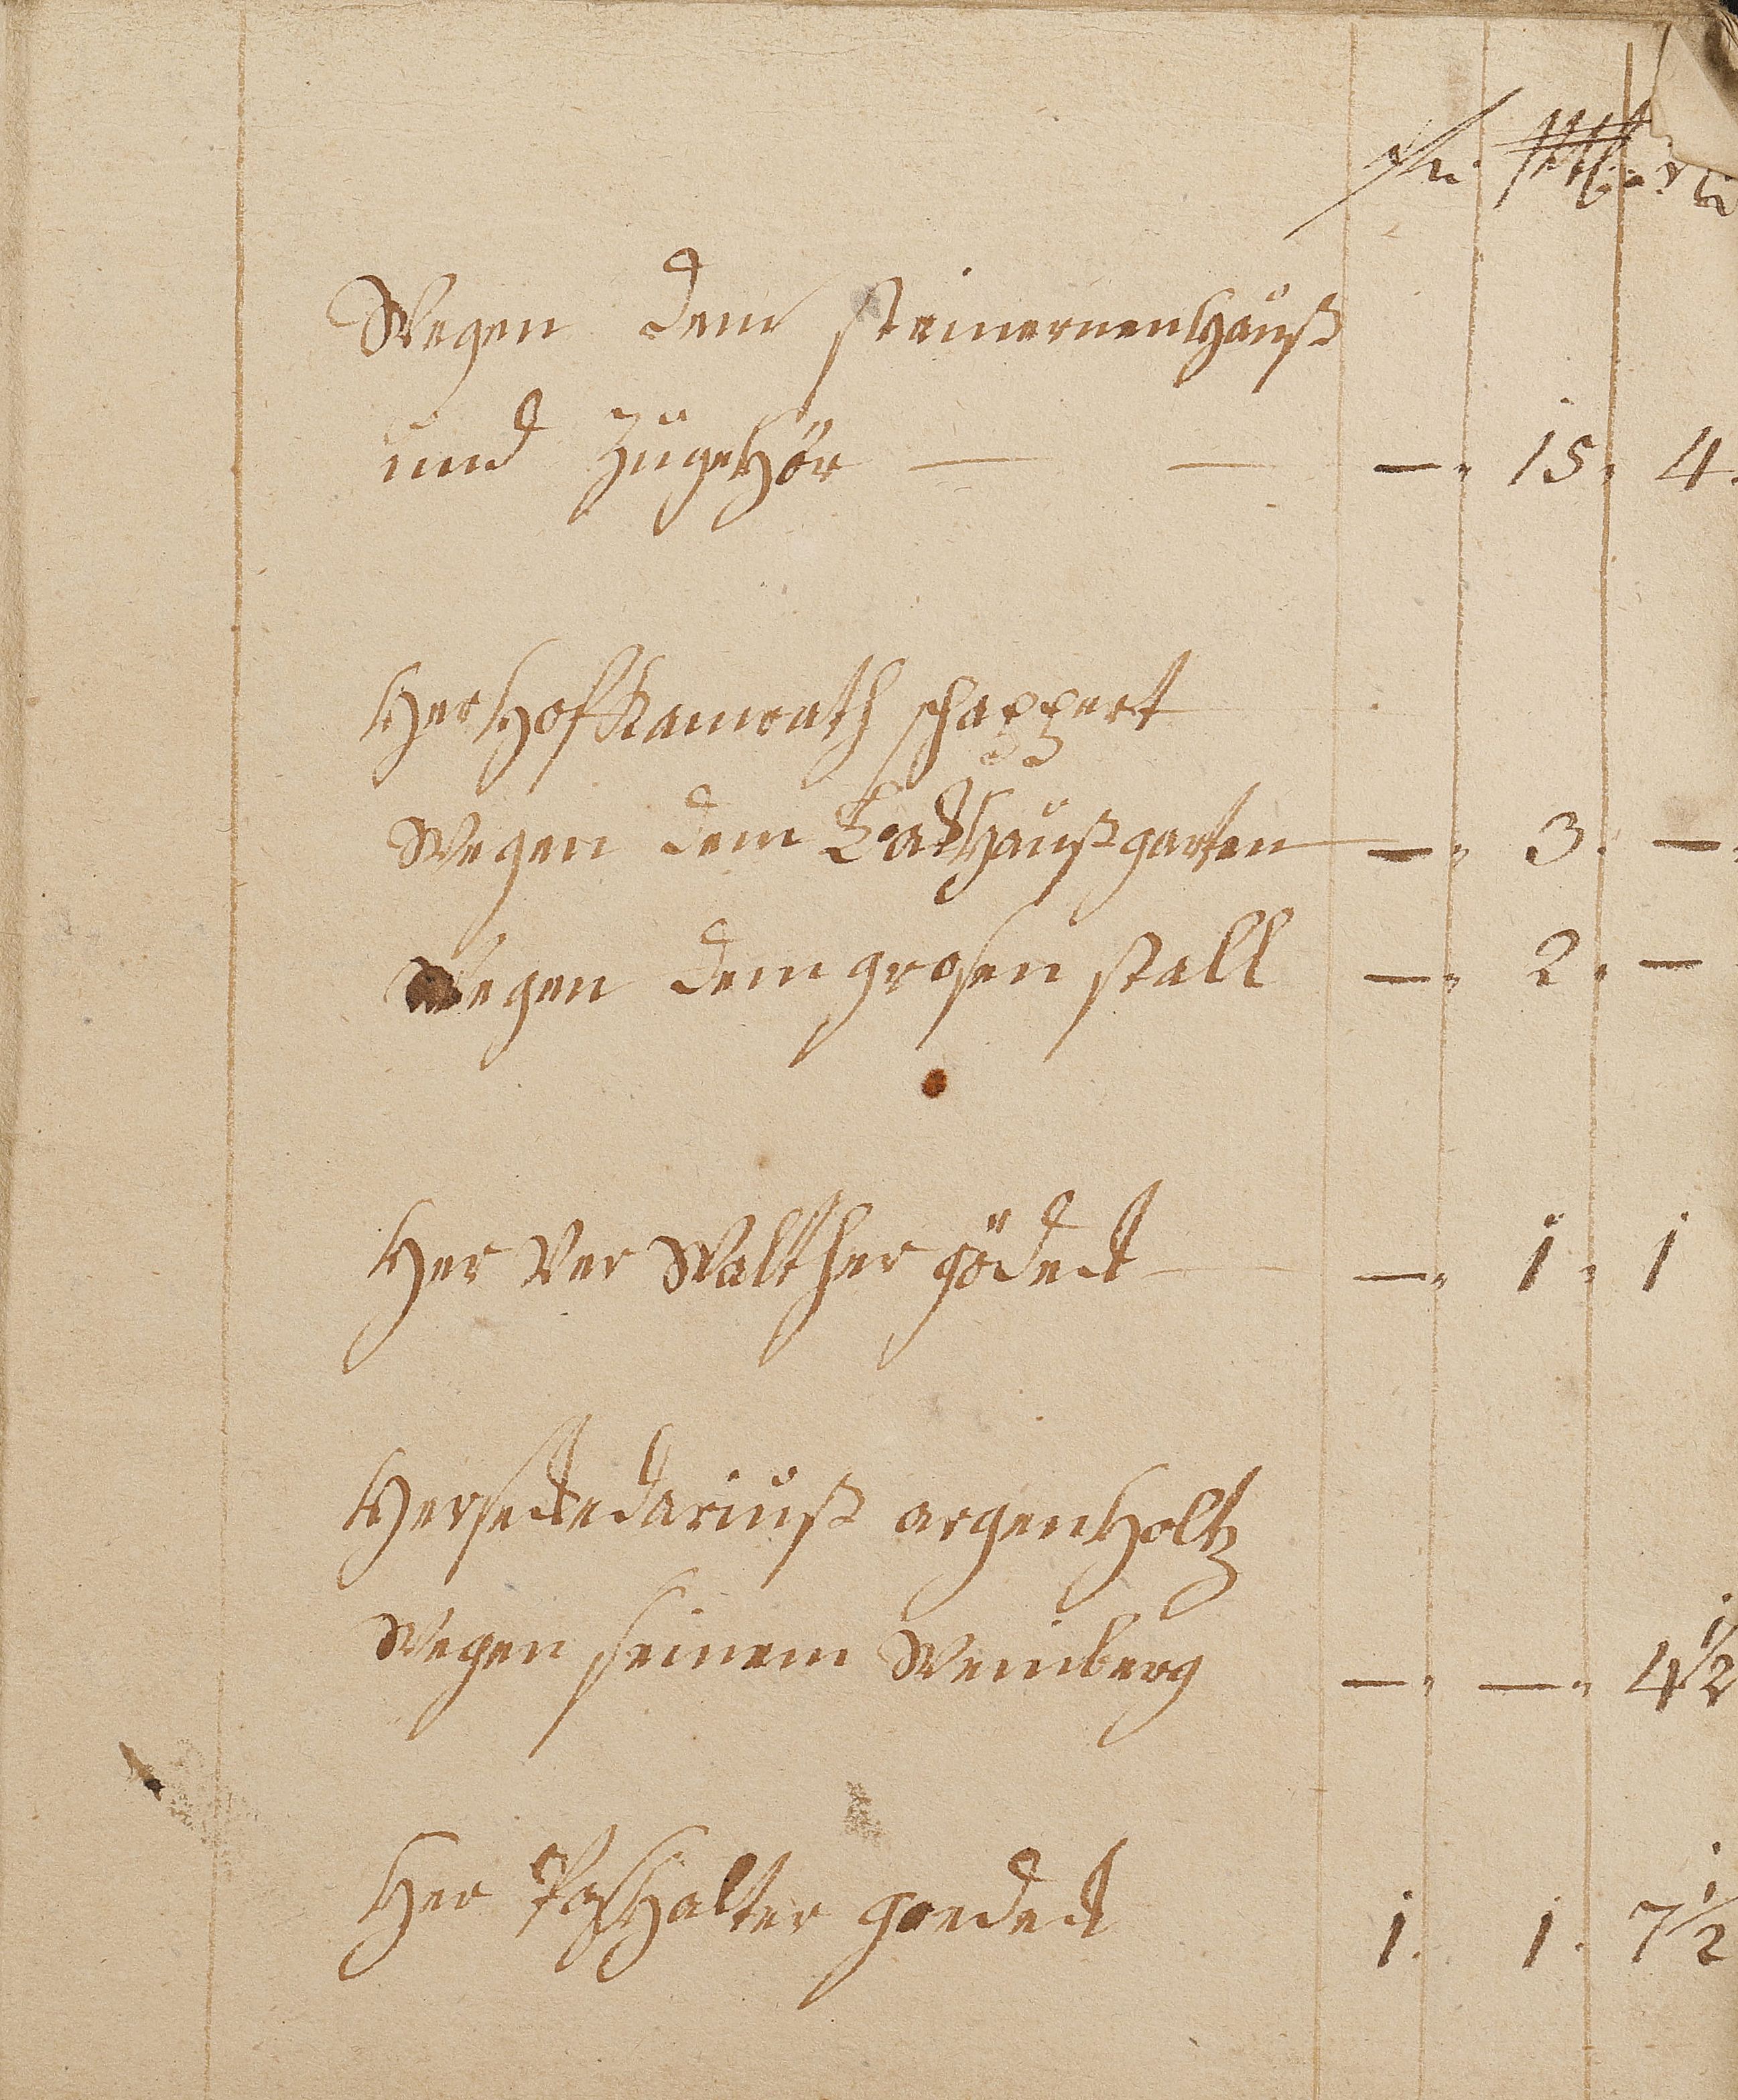 Wegen dem steinernen Hauß
und Zugehör — — — 15. 4.
Her Hoff Kamrath schappert
Wegen dem Backhaußgarten — 3. —
Wegen dem grosen stall — 2. —
Her Ver Walther gödect — 1. 1
Her argenholtz
Wegen seinem Weinberg — — 4 1/2
Her Posthalter goedect 1. 1. 7 1/2